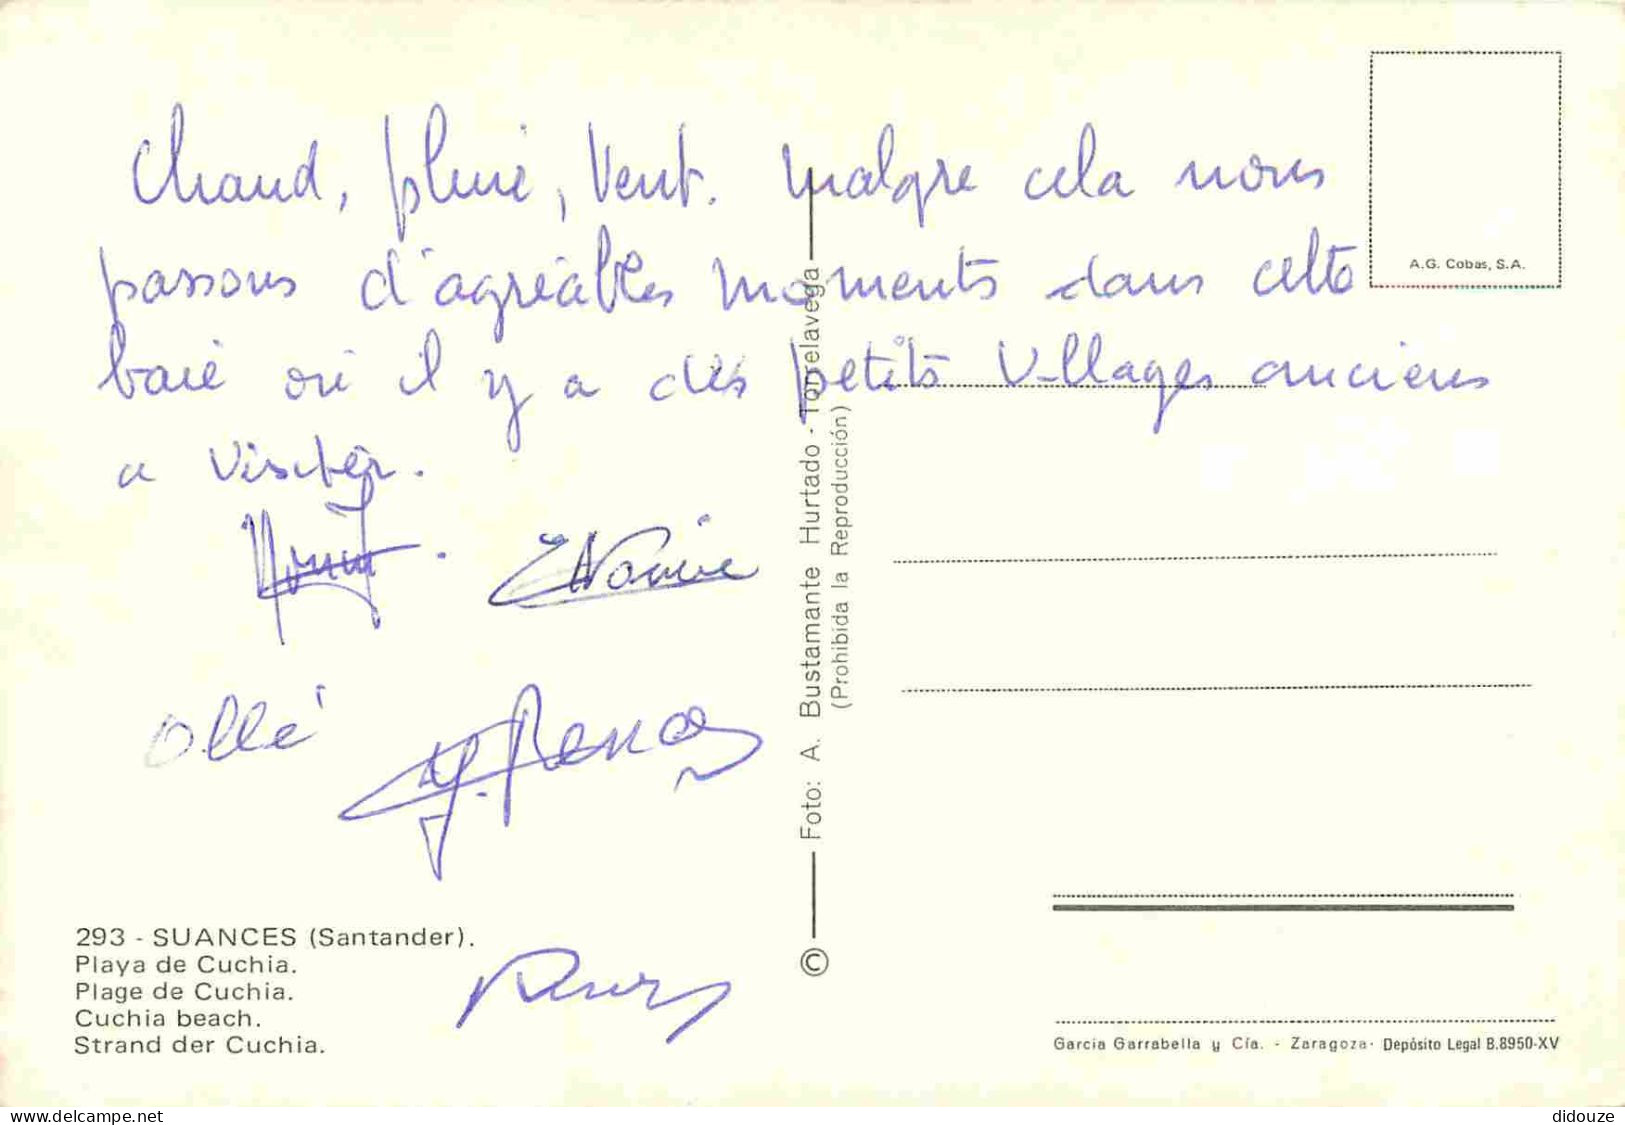 Chaud, pluie, Vent. malgre cela nous
passons d'agréables moments dans cette
baie où il y a des petits villages anciens
a visiter.
Ollé
A.G. Cobas, S.A.
© Foto: A. Bustamante Hurtado - Torrelavega
(Prohibida la Reproducción)
293 - SUANCES (Santander).
Playa de Cuchia.
Plage de Cuchia.
Cuchia beach.
Strand der Cuchia.
Garcia Garrabella y Cía. - Zaragoza- Depósito Legal B.8950-XV
delcampe.net
didouze